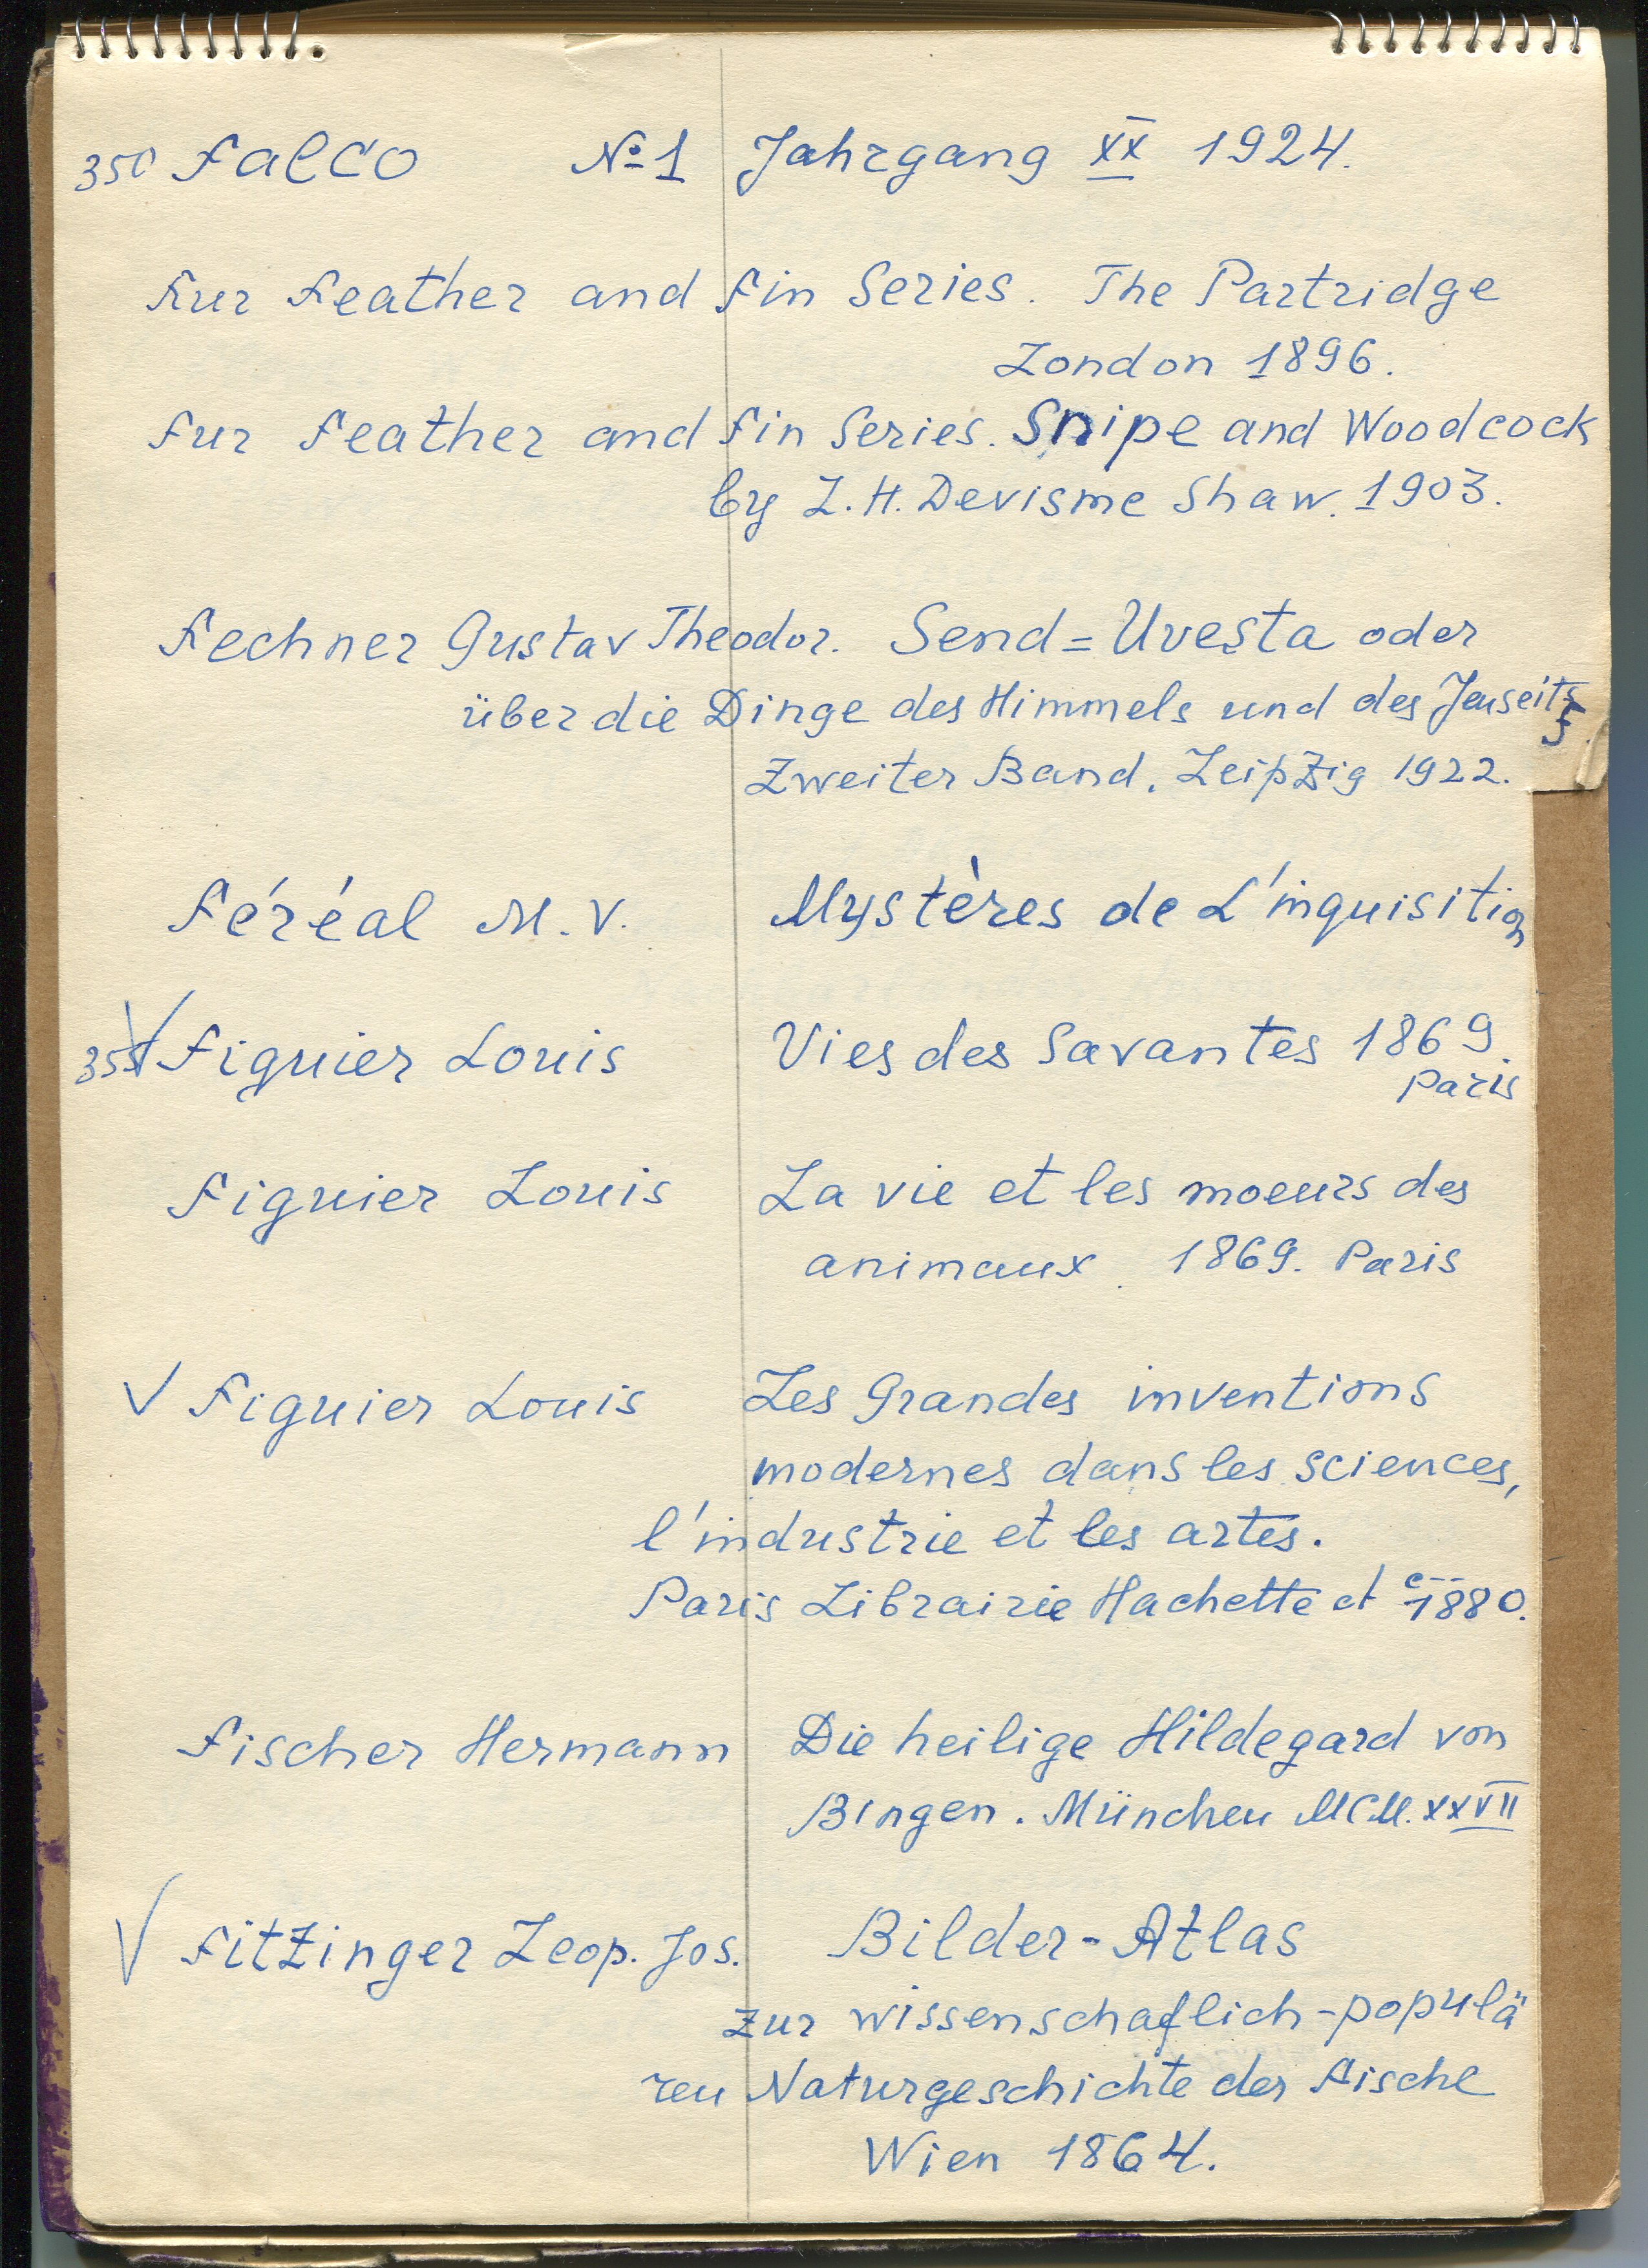 350 Falco № 1 Jahrgang XX 1924.
Fur Feather and Fin Series. The Partridge
London 1896.
Fur Feather and Fin Series. Snipe and Woodcock
by L. H. Devisme Shaw. 1903.
Fechner Gustav Theodor. Send=Uvesta oder
über die Dinge des Himmels und des Jenseits
Zweiter Band. Leipzig 1922.
Féréal M. V. Mystères de L'inquisition
355 √ Figuier Louis Vies des Savantes 1869.
Paris
Figuier Louis La vie et les moeurs des
animaux. 1869. Paris
√ Figuier Louis Les Grandes inventions
modernes dans les sciences,
l'industrie et les artes.
Paris Librairie Hachette et C-- 1880.
Fischer Hermann Die heilige Hildegard von
Bingen. München MCM.XXVII
√ Fitzinger Leop. Jos. Bilder-Atlas
zur wissenschaflich-populä
ren Naturgeschichte der Fische
Wien 1864.